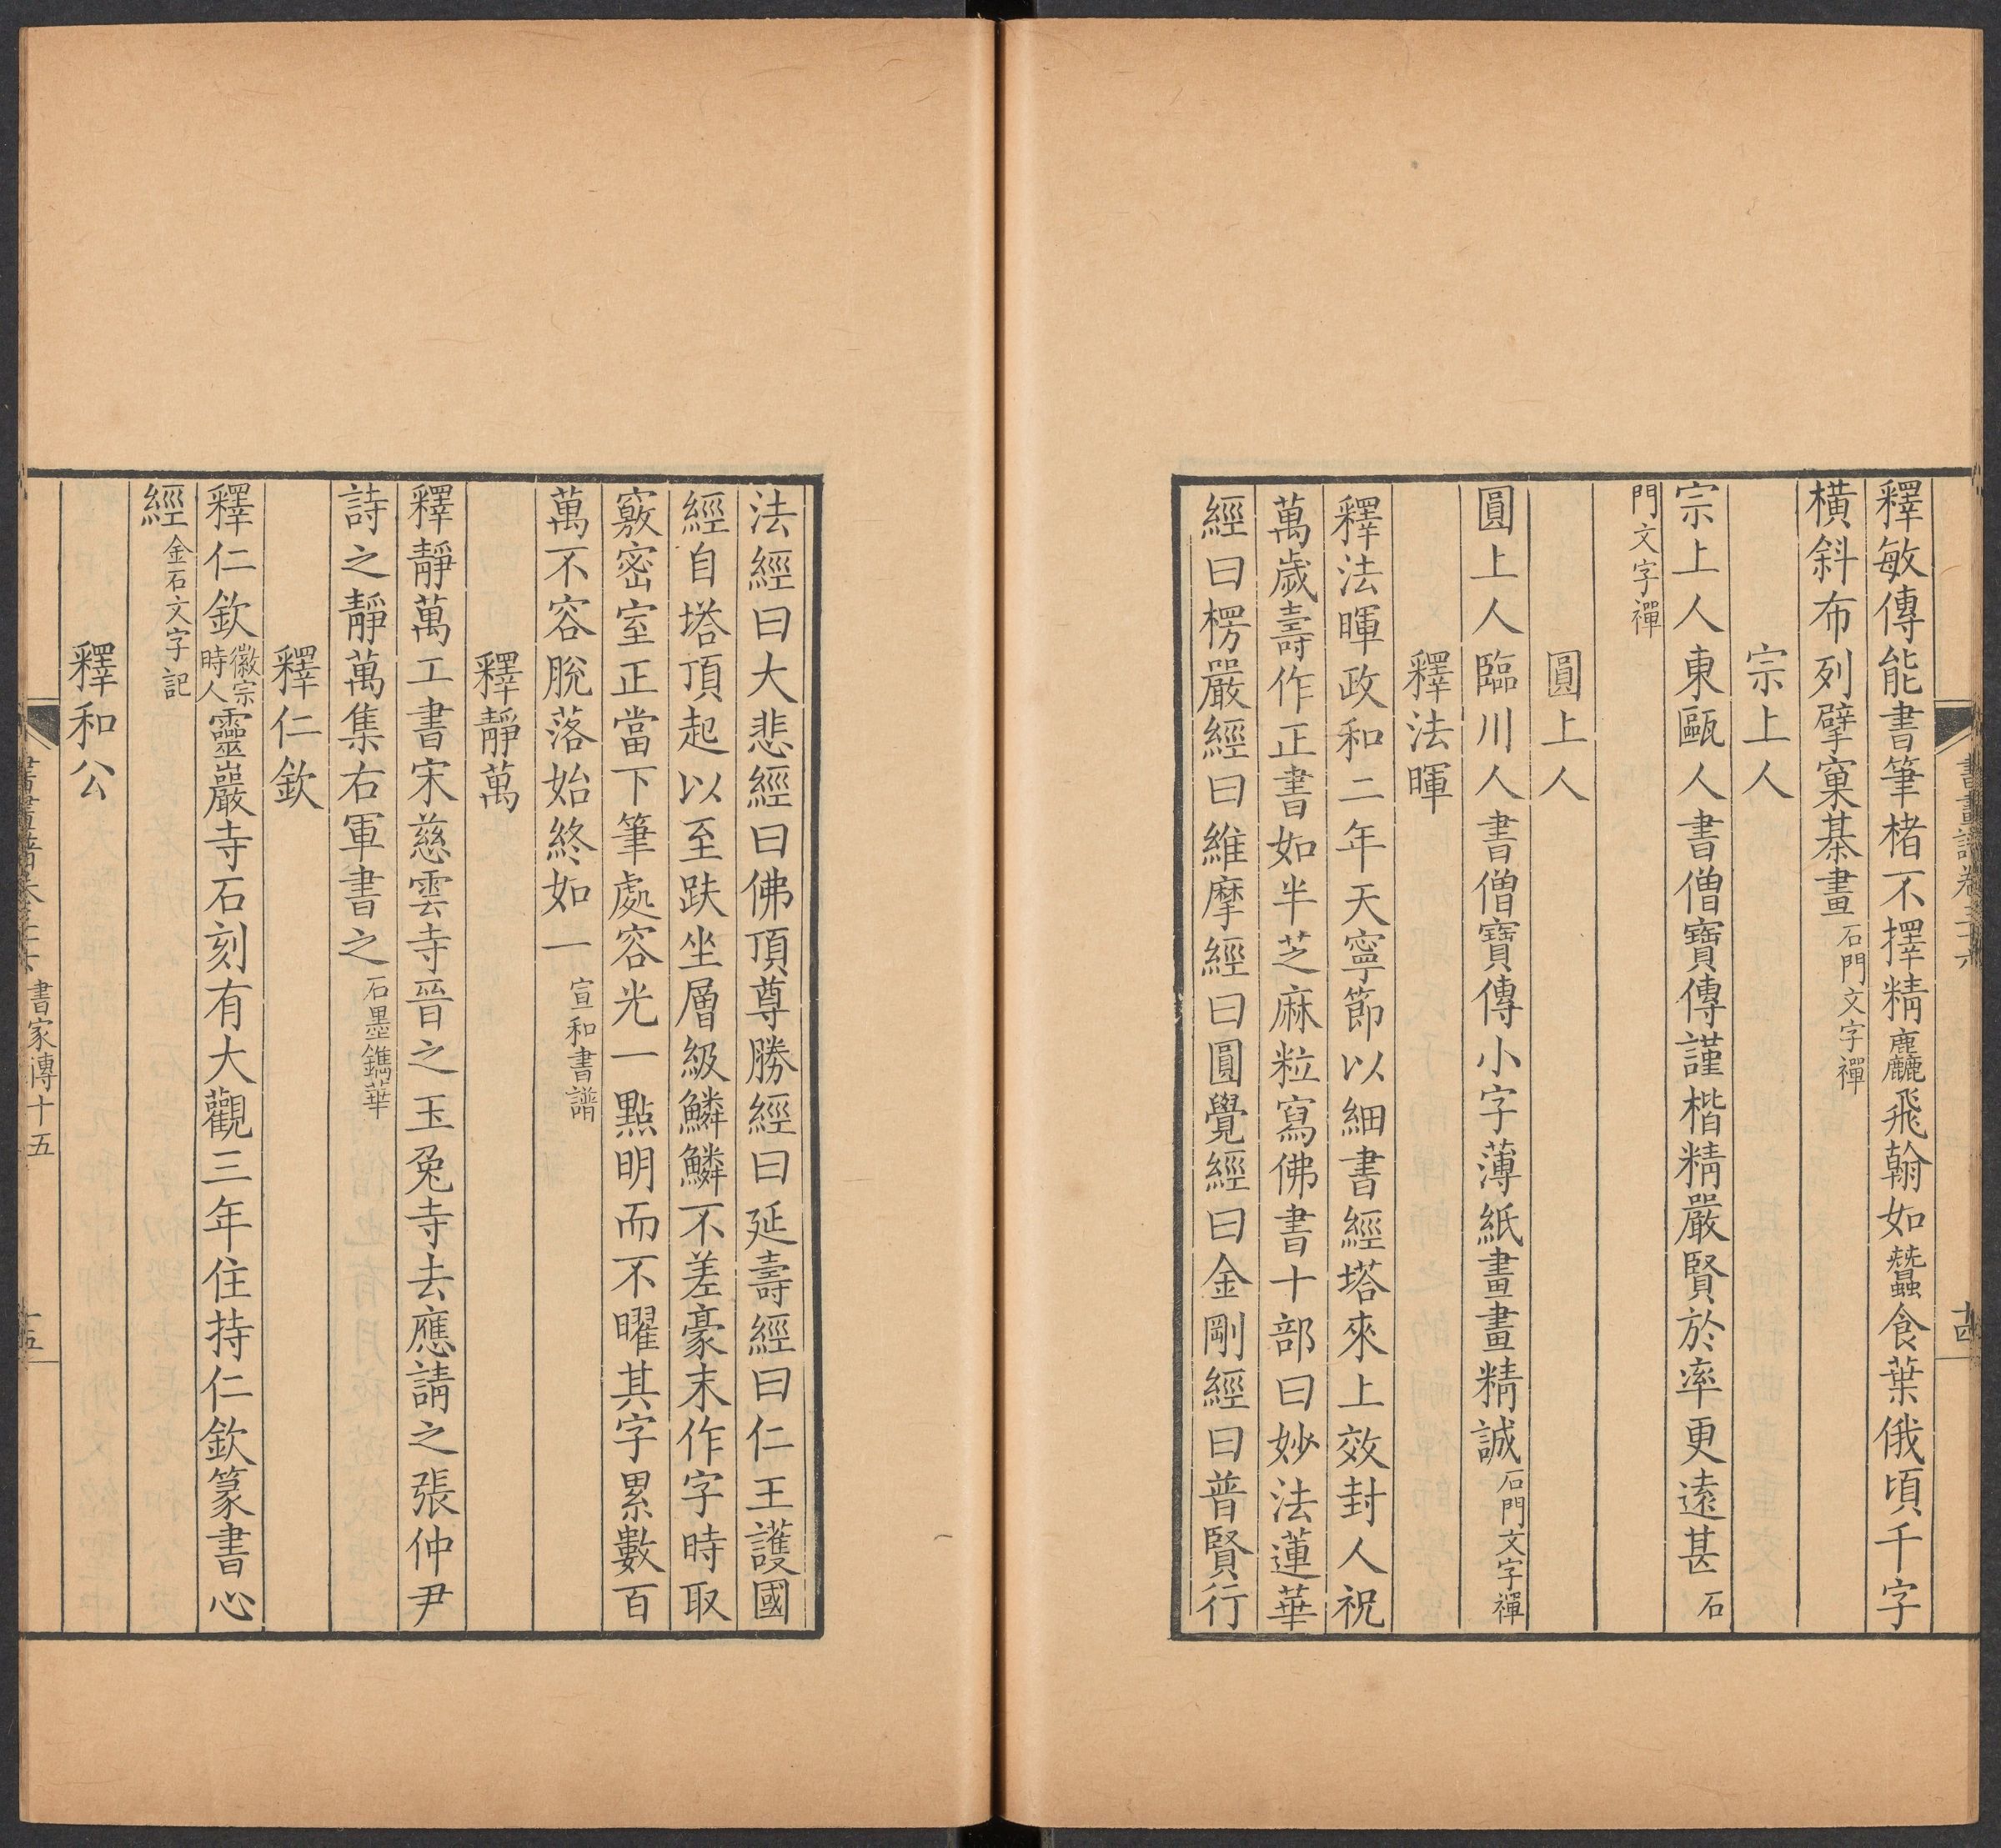 釋敏傳能書筆楮不擇精麤飛翰如蠶食葉俄頃千字
橫斜布列擘窠棊畫石門文字禪
宗上人
宗上人東甌人書僧寶傳謹楷精嚴賢於率更遠甚石
門文字禪
圓上人
圓上人臨川人書僧寶傳小字薄紙畫畫精誠石門文字禪
釋法暉
釋法暉政和二年天寧節以細書經塔來上效封人祝
萬歲壽作正書如半芝麻粒寫佛書十部曰妙法蓮華
經曰楞嚴經曰維摩經曰圓覺經曰金剛經曰普賢行
法經曰大悲經曰佛頂尊勝經曰延壽經曰仁王護國
經自塔頂起以至趺坐層級鱗鱗不差豪末作字時取
竅密室正當下筆處容光一點明而不曜其字累數百
萬不容脫落始終如一宣和書譜
釋靜萬
釋靜萬工書宋慈雲寺晉之玉兔寺去應請之張仲尹
詩之靜萬集右軍書之石墨鐫華
釋仁欽
釋仁欽徽宗時人靈巖寺石刻有大觀三年住持仁欽篆書心
經金石文字記
釋和公
書家傳十五